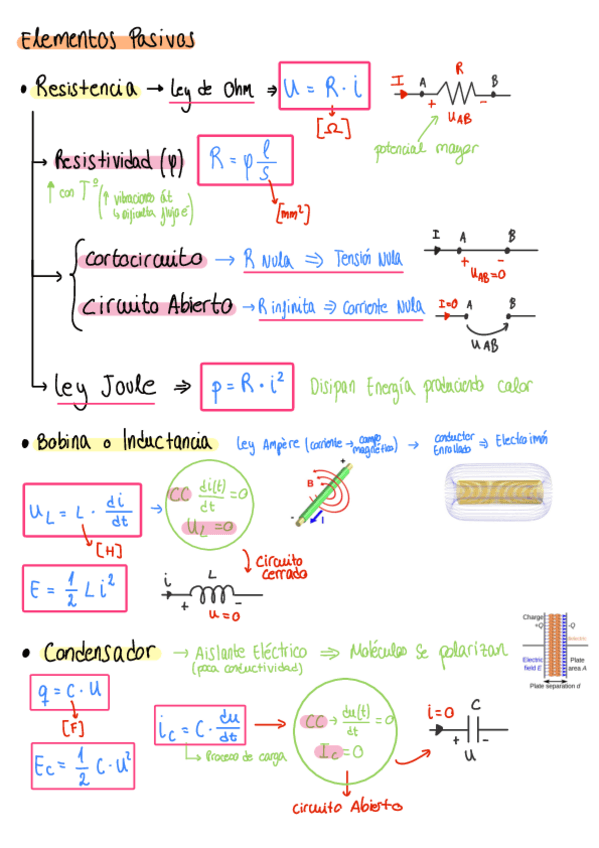 Elementos Pasivos
• Resistencia → Ley de Ohm ⇒ U = R · i
[Ω]
I A R B
+ UAB -
potencial mayor
→ Resistividad (ρ) R = ρ l/s
[mm²]
↑ con Tº (↑ vibraciones át
↳ dificulta flujo e⁻)
Cortocircuito → R Nula ⇒ Tensión Nula
I A B
+ -
UAB=0
Circuito Abierto → R infinita ⇒ Corriente Nula
I=0 A B
UAB
→ Ley Joule ⇒ p = R · i² Disipan Energía produciendo calor
• Bobina o Inductancia Ley Ampère (corriente → campo magnético) → conductor Enrollado ⇒ Electroimán
UL = L · di/dt → CC di(t)/dt = 0
UL = 0
[H]
B
I
+
-
circuito
cerrado
E = 1/2 L i²
i L
+ -
u = 0
• Condensador → Aislante Eléctrico ⇒ Moléculas se polarizan
(poca conductividad)
Charge
+Q -Q
dielectric
Electric
field E
Plate
area A
Plate separation d
q = C · U
[F]
ic = C · du/dt → CC → du(t)/dt = 0
Ic = 0
↳ Proceso de carga
i=0 C
+ -
U
Ec = 1/2 C · U²
circuito Abierto